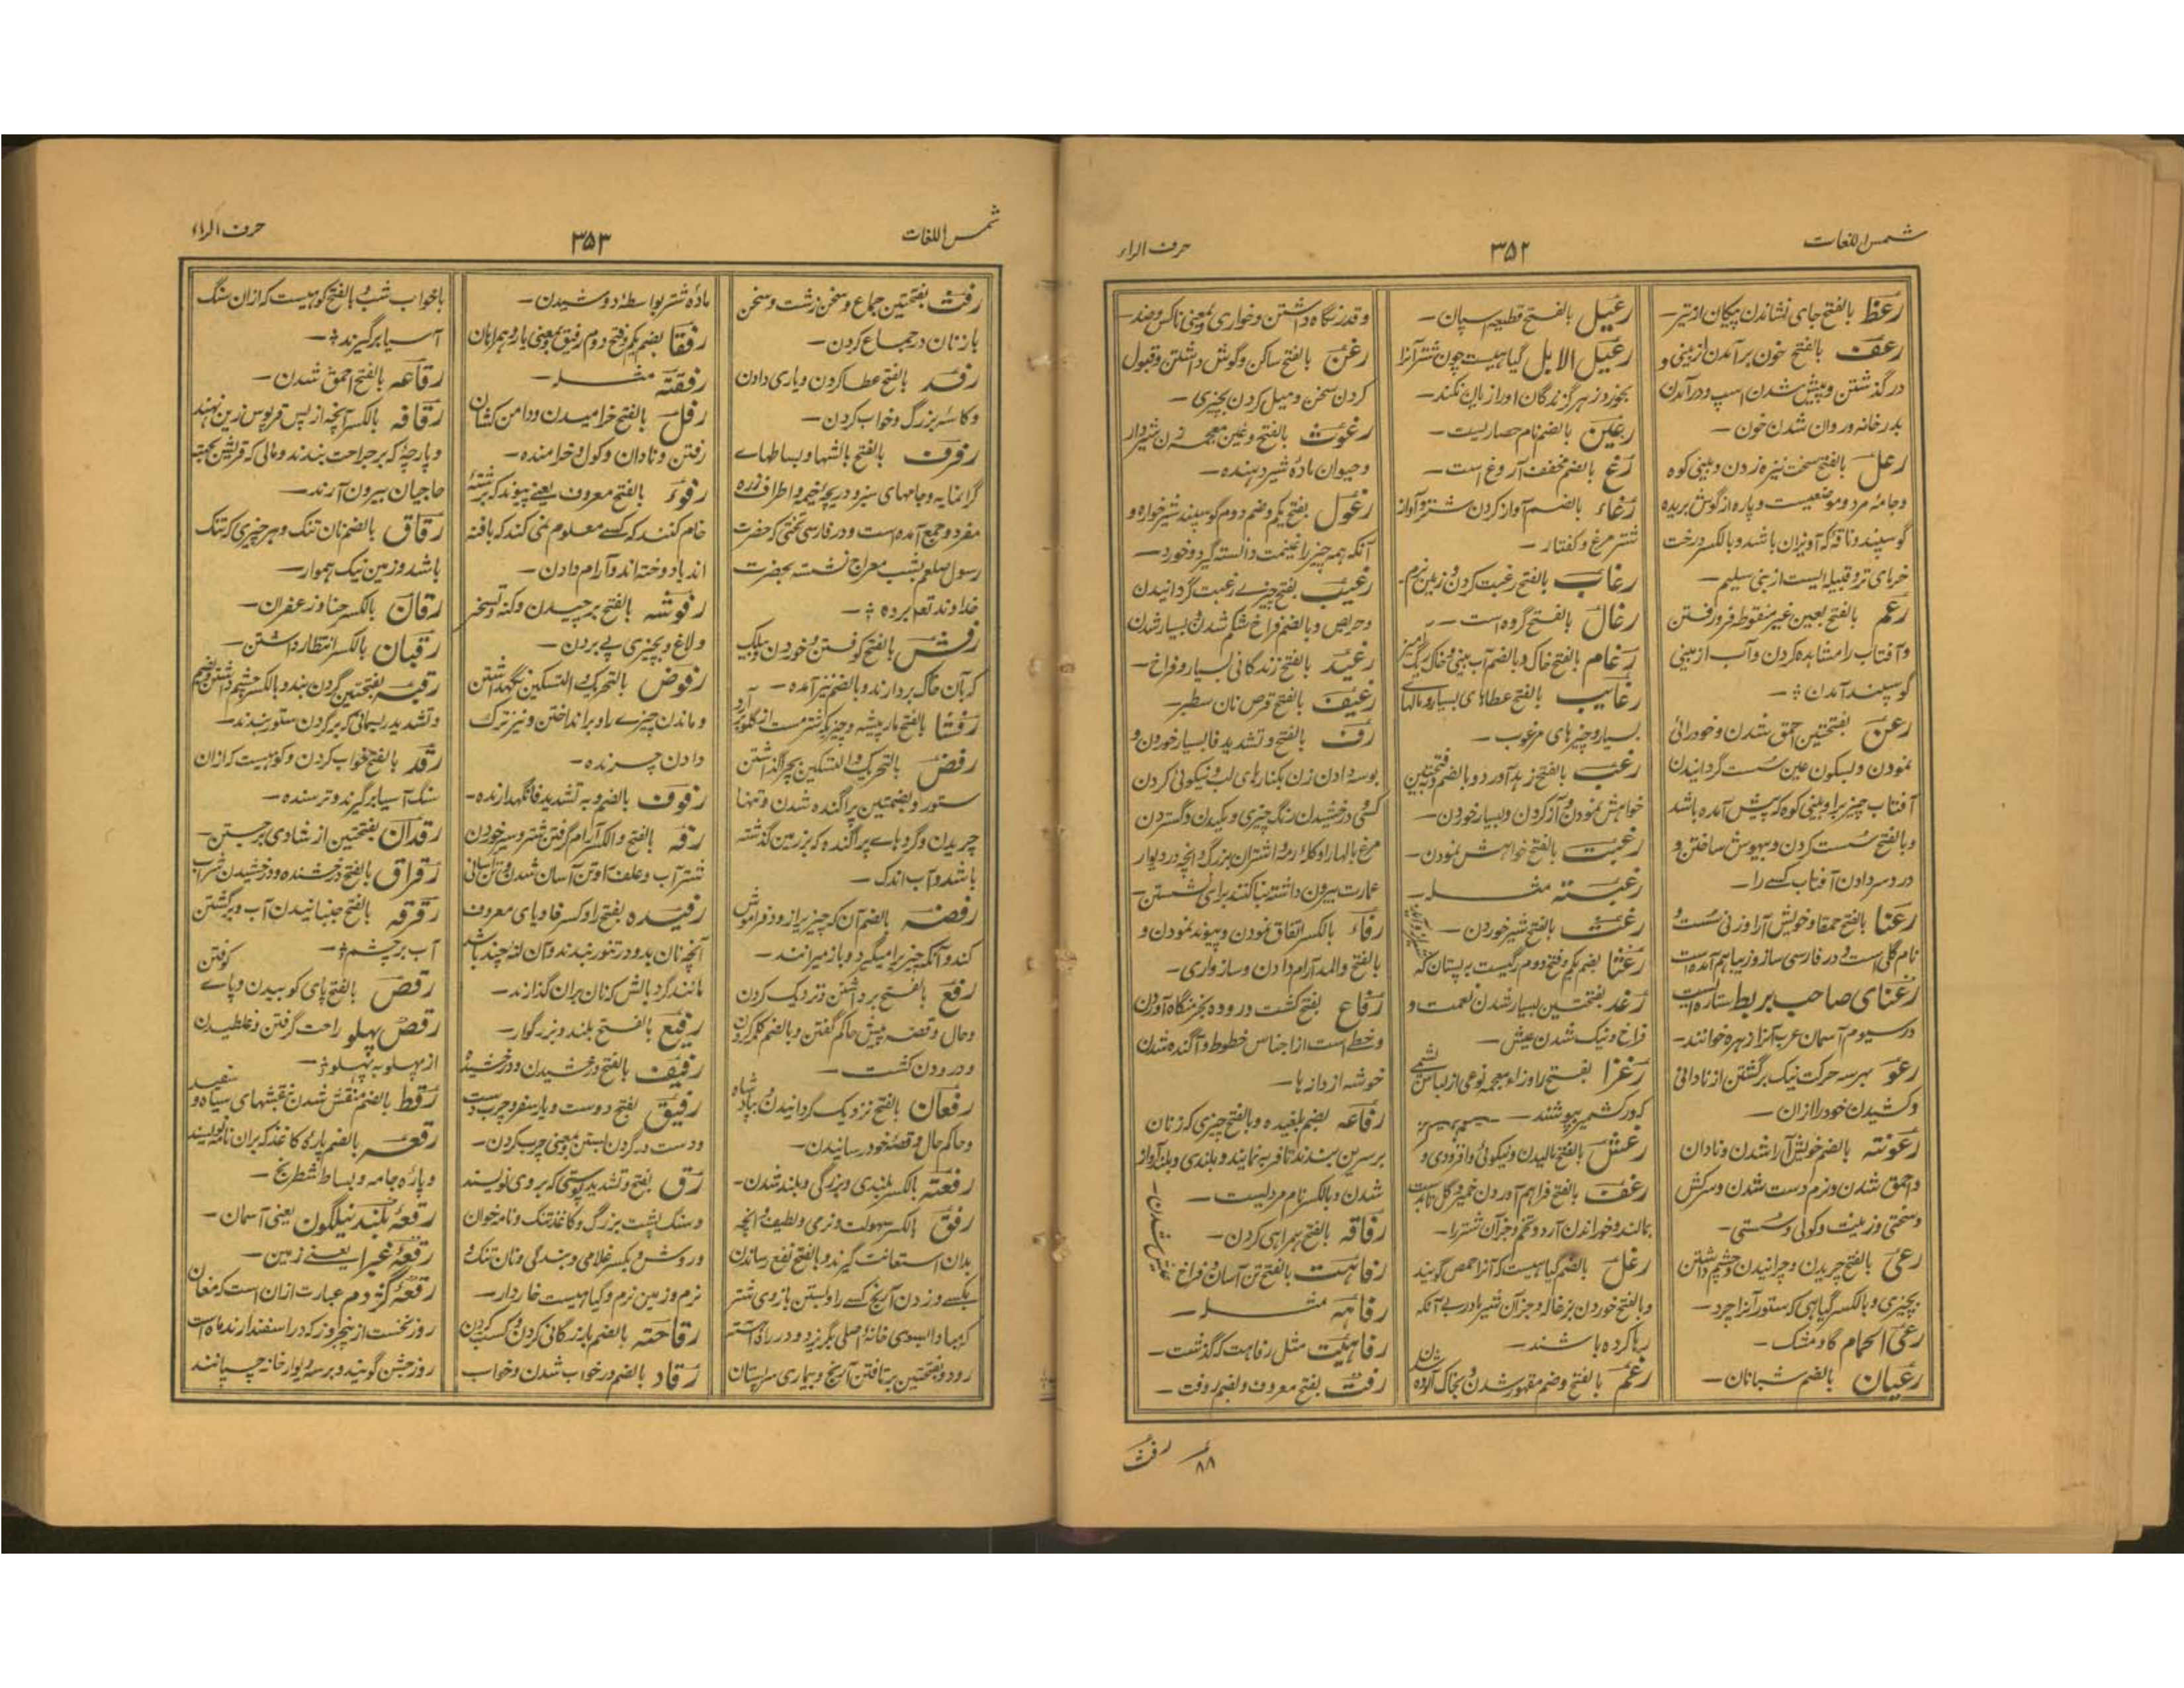 شمس اللغات
۳۵۲
حرف الراء
رعظ بالفتح جای نشاندن پیکان از تیر—
رعف بالفتح خون برآمدن از بینی و
درگذشتن و پیش شدن اسپ و درآمدن
بدر خانه و روان شدن خون—
رعل بالفتح سخت نیزه زدن و بینی کوه
و جامهٔ مرد و موضعیست و پاره از گوش بریده
گوسپند و ناقه که آویزان باشد و بالکسر درخت
خرمای تر و قبیله ایست از بنی سلیم—
رعم بالفتح بعین غیر منقوطه فرو رفتن
و آفتاب را مشاهده کردن و آب از بینی
گوسپند آمدن
رعن بفتحتین احمق شدن و خودرائی
نمودن و بسکون عین سست گردانیدن
آفتاب چیزیرا و بینی کوه که پیش آمده باشد
و بالفتح سست کردن و بیهوش ساختن و
درد سر دادن آفتاب کسے را—
رعنا بالفتح حمقا و خویش آرا و زنی سست و
نام گلی است و در فارسی ساز و زیبا هم آمده است
رعنای صاحب بربط ستاره ایست
در سیوم آسمان عرب آنرا زهره خوانند—
رعو بهر سه حرکت نیک برگشتن از نادانی
و کشیدن خود را ازان—
رعونته بالضم خویش آرا شدن و نادان
و احمق شدن و نرم دست شدن و سرکش
و سختی و زینت و کولی و سستی—
رعی بالفتح چریدن و چرانیدن و چشم داشتن
بچیزی و بالکسر گیاهی که ستور آنرا چرد—
رعی الحمام گاو مشک—
رعیان بالضم شبانان—
رعیل بالفتح قطیعه اسپان—
رعیل الابل گیاهیست چون شتر آنرا
بخورد زهر گزندگان اورا زیان نکند—
رعین بالضم نام حصاریست—
رغ بالضم مخفف آروغ است—
رغاء بالضم آواز کردن شتر و آواز
شتر مرغ و کفتار—
رغاب بالفتح رغبت کردن و زمین نرم—
رغال بالفتح گروه است—
رغام بالفتح خاک و بالضم آب بینی و خاک ریگ آمیز
رغایب بالفتح عطاهای بسیار و مالهای
بسیار و چیزهای مرغوب—
رغب بالفتح زهد آورد و بالضم و فتحتین
خواهش نمودن و آز کردن و بسیار خوردن—
رغبت بالفتح خواهش نمودن—
رغبته مثله—
رغث بالفتح شیر خوردن—
رغثا بضم یکم و فتح دوم رگیست بر پستان که
رغد بفتحتین بسیار شدن نعمت و
فراخ و نیک شدن عیش—
رغزا بفتح را و زاء معجمه نوعی از لباس پشمی
که در کشمیر پوشند—
رغش بالفتح بالیدن و نیکوئی و افزودی و
رغف بالفتح فراهم آوردن خمیر و گل تا بدست
بمالند و خوراندن آرد و تخم و جز آن شتر را—
رغل بالضم گیاهیست که آنرا حمص گویند
و بالفتح خوردن بزغاله و جز آن شیر مادر بے آنکه
رها کرده باشند—
رغم بالفتح و ضم مقهور شدن و بخاک آلوده شدن
و قدر نگاه داشتن و خواری و بمعنی ناکس و ضد—
رغن بالفتح ساکن و گوش داشتن و قبول
کردن سخن و میل کردن بچیزی—
رغوث بالفتح و غین معجمه زن شیردار
و حیوان مادهٔ شیر دهنده—
رغول بفتح یکم و ضم دوم گوسپند شیرخواره و
آنکه همه چیز را غنیمت دانسته گیرد و خورد—
رغیب بفتح چیزے رغبت گردانیدن
و حریص و بالضم فراخ شکم شدن و بسیار شدن
رغید بالفتح زندگانی بسیار و فراخ—
رغیف بالفتح قرص نان سطبر—
رف بالفتح و تشدید فا بسیار خوردن و
بوسه دادن زن بکنارهای لب و نیکوئی کردن
کسی و درخشیدن رنگ چیزی و مکیدن و گستردن
مرغ بالها را و گلهٔ رمه اشتران بزرگ و آنچه در دیوار
عمارت بیرون داشته بنا کنند برای نشستن—
رفاء بالکسر اتفاق نمودن و پیوند نمودن و
بالفتح والمد آرام دادن و سازواری—
رفاع بفتح کشت دروده بخرمنگاه آوردن
و خطی است از اجناس خطوط و آگنده شدن
خوشه از دانه ها—
رفاعه بضم بلغیده و بالفتح چیزی که زنان
بر سرین بندند تا فربه نمایند و بلندی و بلند آواز
شدن و بالکسر نام مردیست—
رفاقه بالفتح همراهی کردن—
رفاهت بالفتح تن آسان و فراخ
عیش شدن—
رفاهه مثله—
رفاهیت مثل رفاهت که گذشت—
رفت بفتح معروف و بضم روفت—
۸۸
رفث
شمس اللغات
۳۵۳
حرف الراء
رفث بفتحتین جماع و سخن زشت و سخن
با زنان در جماع کردن—
رفد بالفتح عطا کردن و یاری دادن
و کاسهٔ بزرگ و خواب کردن—
رفرف بالفتح بالشها و بساطهاے
گرانمایه و جامهای سبز و دریچه خیمه و اطراف زره
مفرد و جمع آمده است و در فارسی تختی که حضرت
رسول صلعم بشب معراج نشسته بحضرت
خداوند تعم برده
رفش بالفتح کوفتن و خوردن و بیلک
که بآن خاک بردارند و بالضم نیز آمده—
رفشا بالفتح مار پیشه و چیزیکه شتر مست از گلو برآرد
رفض بالتحریک والتسکین بچرا گذاشتن
ستور و بضمتین پراگنده شدن و تنها
چریدن و گروهاے پراگنده که بر زمین گذشته
باشد و آب اندک—
رفضه بالضم آن که چیزیرا زود فراموش
کند و آنکه چیزیرا میگیرد و باز میراند—
رفع بالفتح برداشتن و نزدیک کردن
و حال و قصه پیش حاکم گفتن و بالضم کلمه کردن
و درودن کشت—
رفعان بالفتح نزدیک گردانیدن بپادشاه
و حاکم حال و قصهٔ خود رسانیدن—
رفعته بالکسر بلندی و بزرگی و بلند شدن—
رفق بالکسر سهولت و نرمی و لطیف و آنچه
بدان استعانت گیرند و بالفتح نفع رساندن
بکسے و زدن آرنج کسے را و بستن بازوی شتر
که مبادا بسوی خانهٔ اصلی بگریزد و در راه آهسته
رود و بفتحتین برتافتن آرنج و بیماری سر پستان
مادهٔ شتر بواسطه دوشیدن—
رفقا بضم یکم و فتح دوم رفیق بمعنی یار و همراهان
رفقته مثله—
رفل بالفتح خرامیدن و دامن کشان
رفتن و نادان و کول و خرامنده—
رفوء بالفتح معروف یعنے پیوند که برشتهٔ
خام کنند که کسے معلوم نمی کند که بافته
اند یا دوخته اند و آرام دادن—
رفوشه بالفتح برچیدن و کنه و تسخر
و لاغ و بچیزی پے بردن—
رفوض بالتحریک و التسکین نگهداشتن
و ماندن چیزے را و بر انداختن و نیز ترک
دادن چرنده—
رفوف بالضم و به تشدید فا نگهدارنده—
رفه بالفتح والکسر آرام گرفتن شتر و سیر خوردن
شتر آب و علف و تن آسان شدن و تن آسانی
رفیده بفتح را و کسر فا و یای معروف
آنچه نان بدو در تنور بندند و آن لته چند باشد
مانند گرد بالش که نان بران گذارند—
رفیع بالفتح بلند و بزرگوار—
رفیف بالفتح درخشیدن و درخشنده
رفیق بفتح دوست و یار سفر و چرب دست
و دست در گردن بستن بمعنی چرب کردن—
رق بفتح و تشدید پوستی که بروی نویسند
و سنگ پشت بزرگ و کاغذ تنک و نامه خوان
و روش و بکسر غلامی و بندگی و نان تنک و
نرم و زمین نرم و گیاهیست خاردار—
رقاحته بالضم بازرگانی کردن و کسب کردن
رقاد بالضم در خواب شدن و خواب
یا خواب شب و بالفتح کوهیست که ازان سنگ
آسیا برگیرند
رقاعه بالفتح احمق شدن—
رقافه بالکسر آنچه از پس قربوس زین نهند
و پارچهٔ که بر جراحت بندند و مالی که قریش بجهته
حاجیان بیرون آرند—
رقاق بالضم نان تنک و هر چیزی که تنک
باشد و زمین نیک هموار—
رقان بالکسر حنا و زعفران—
رقبان بالکسر انتظار داشتن—
رقبه بفتحتین گردن بنده و بالکسر چشم داشتن و بضم
و تشدید ریسمانی که بر گردن ستور بندند—
رقد بالفتح خواب کردن و کوهیست که ازان
سنگ آسیا برگیرند و ترسنده—
رقدان بفتحتین از شادی برجستن—
رقراق بالفتح درخشنده و درخشیدن سراب
رقرقه بالفتح جنبانیدن آب و برگشتن
آب بر چشم
رقص بالفتح پای کوبیدن و پاے کوفتن
رقص پهلو راحت گرفتن و غلطیدن
از پهلو به پهلو
رقط بالضم منقش شدن بنقشهای سیاه و سفید
رقعه بالضم پارهٔ کاغذ که بران نامه نویسند
و پارهٔ جامه و بساط شطرنج—
رقعهٔ بلند نیلگون یعنی آسمان—
رقعهٔ غبرا یعنے زمین—
رقعهٔ گژدم عبارت ازان است که مغان
روز نخست از پنجروز که در اسفندارند ماه است
روز جشن گویند و بر سه دیوار خانه چسپانند